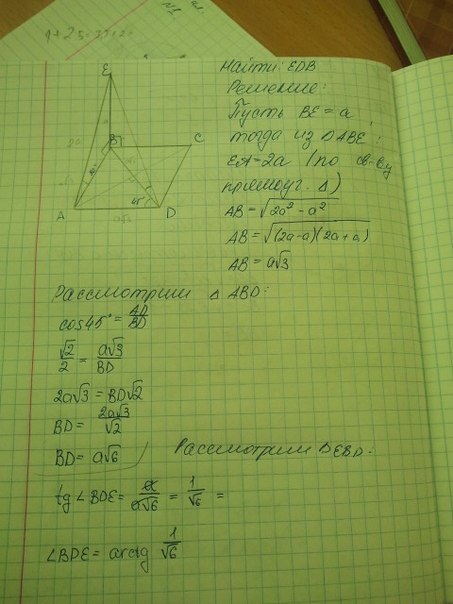 E
B
C
A
D
45°
a√3
Найти: EDB
Решение:
Пусть BE = a
тогда из △ABE:
EA=2a (по св-ву
прямоуг. △)
AB = √2a² - a²
AB = √(2a-a)(2a+a)
AB = a√3
Рассмотрим △ ABD:
cos45° = AD/BD
√2/2 = a√3/BD
2a√3 = BD√2
BD = 2a√3/√2
BD = a√6
Рассмотрим △EBD:
tg∠BDE = a/a√6 = 1/√6 =
∠BDE = arctg 1/√6